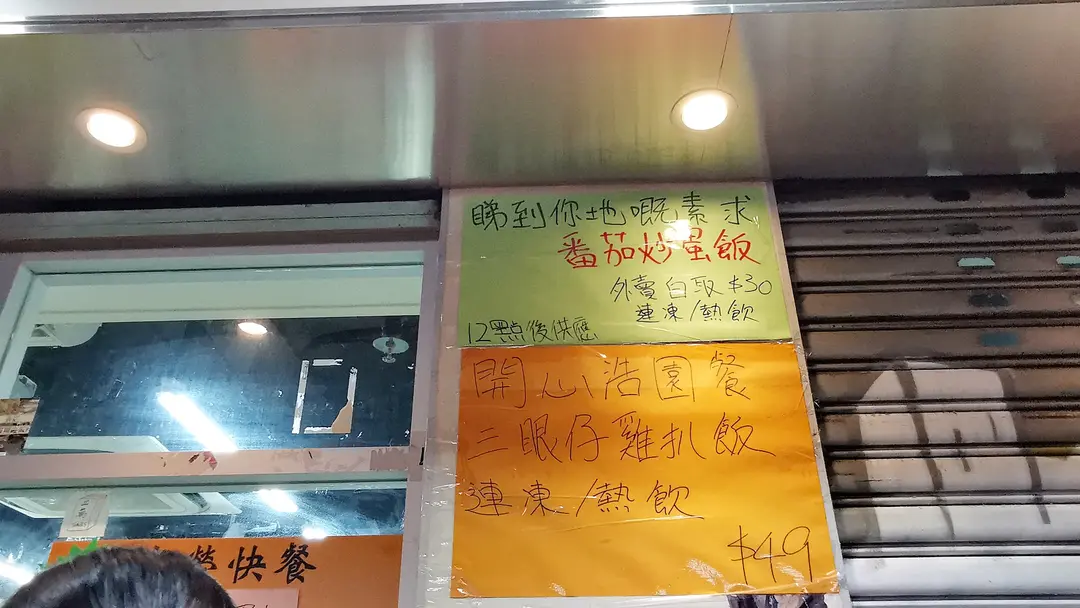 睇到你地嘅素求
番茄炒蛋飯
外賣自取 $30
連凍/熱飲
12點後供應
開心浩園餐
三眼仔雞扒飯
連凍/熱飲
$49
快餐